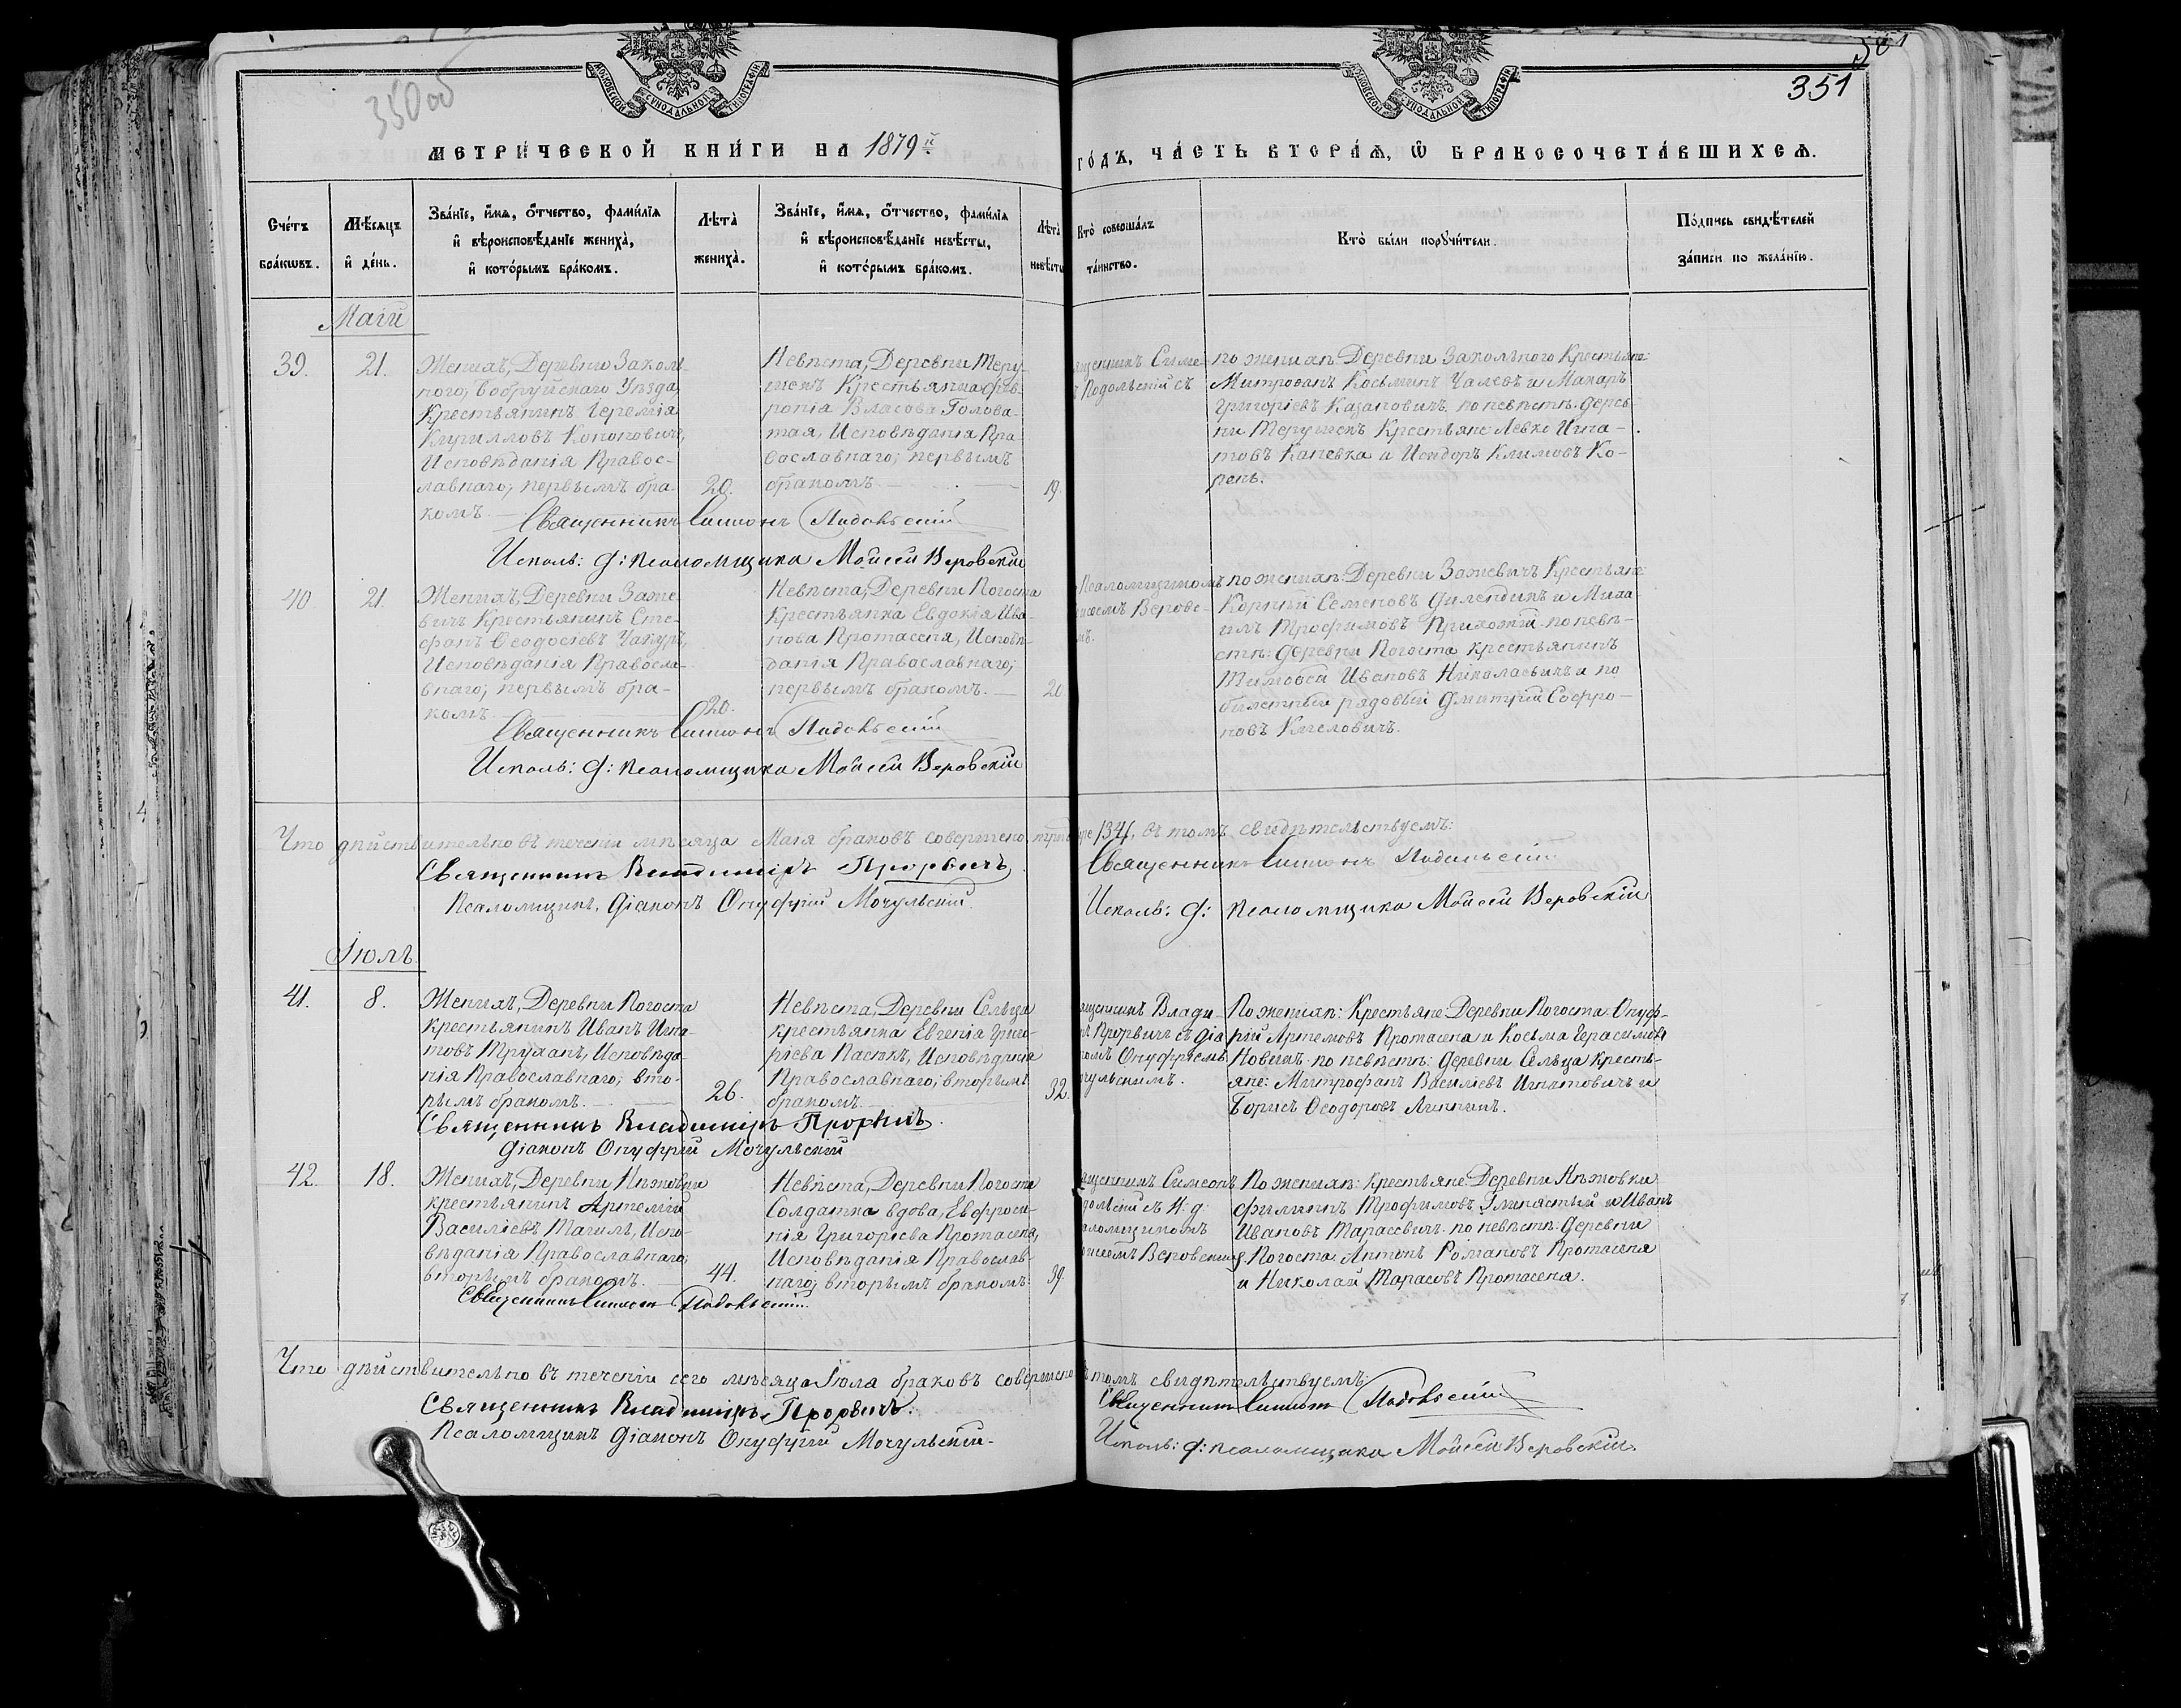 350 об
351
МОСКОВСКОЙ СѴНОДАЛЬНОЙ ТИПОГРАФІИ
МОСКОВСКОЙ СѴНОДАЛЬНОЙ ТИПОГРАФІИ
МЕТРИ́ЧЕСКОЙ КНИ́ГИ НА 1879й
ГО́ДЪ, ЧА́СТЬ ВТОРА́Ѧ, Ѽ БРАКОСОЧЕТА́ВШИХСѦ.
Сче́тъ бра́кѡвъ.
Мѣ́сѧцъ и҆ де́нь.
Зва́нїе, и҆́мѧ, ѻ҆́тчество, фамѝлїѧ и҆ вѣроисповѣ́данїе жениха̀, и҆ кото́рымъ бра́комъ.
Лѣта̀ жениха̀.
Зва́нїе, и҆́мѧ, ѻ҆́тчество, фамѝлїѧ и҆ вѣроисповѣ́данїе невѣ́сты, и҆ кото́рымъ бра́комъ.
Лѣта̀ невѣ́сты
Кто̀ соверша́лъ та́инство.
Кто̀ бы́ли порꙋчи́тели.
По́дпись свидѣ́телей за́писи по жела́нїю.
Маій
39.
21.
Женихъ, Деревню Заколь-
наго, Бобруйскаго Уѣзда,
Крестьянинъ Іеремія
Кирилловъ Кононовичъ,
Исповѣданія Правос-
лавнаго; первымъ бра-
комъ.
20.
Невѣста, Деревни Теру-
шекъ Крестьянка Фев-
ронія Власова Голова-
тая, Исповѣданія Пра-
вославнаго; первымъ
бракомъ.
19.
щенникъ Симе-
Подольскій съ
по женихѣ Деревни Закольного Крестьяне:
Митрофанъ Косьминъ Чалевъ и Макаръ
Григоріевъ Казановичъ. по невѣстѣ. дерев-
ни Терушекъ Крестьяне Левко Игна-
товъ Каневка и Исидоръ Климовъ Ко-
рень.
Священникъ Симеонъ Подольскій
Исполь: д: псаломщика Моисей Веровскій
40.
21.
Женихъ, Деревни Заже-
вичъ Крестьянинъ Сте-
фанъ Ѳеодосіевъ Чакуръ,
Исповѣданія Правосла-
внаго; первымъ бра-
комъ.
20.
Невѣста, Деревни Погоста
Крестьянка Евдокія Ива-
нова Протасеня, Исповѣ-
данія Православнаго;
первымъ бракомъ.
20.
Псаломщикомъ
исеемъ Веровс-
мъ.
по женихѣ: Деревни Зажевичъ Крестьяне:
Корній Семеновъ Дилендикъ и Миха-
илъ Трофимовъ Прихожій. по невѣ-
стѣ: деревни Погоста крестьянинъ
Тимоѳей Ивановъ Николаевичъ и по
билетный рядовый Дмитрій Софро-
новъ Киселовичъ.
Священникъ Симеонъ Подольскій
Исполь: д: псаломщика Моисей Веровскій
Что дѣйствительно въ теченіи мѣсяца Маія браковъ совершено три 134. въ томъ свидѣтельствуемъ:
Священникъ Владиміръ Прорвичъ
Псаломщикъ, Діаконъ Онуфрій Мочульскій.
Священникъ Симеонъ Подольскій
Исполь: д: псаломщика Моисей Веровскій
Іюль.
41.
8.
Женихъ, Деревни Погоста
крестьянинъ Иванъ Игна-
товъ Труханъ, Исповѣда-
нія Православнаго; вто-
рымъ бракомъ.
26.
Невѣста, Деревни Сельца
крестьянка Евгенія Григо-
ріева Пастъ, Исповѣданія
Православнаго; вторымъ
бракомъ.
32.
щенникъ Влади-
Прорвичъ съ Діа
номъ Онуфріемъ
чульскимъ.
По женихѣ: Крестьяне Деревни Погоста: Онуф-
рій Артемовъ Протасеня и Косьма Герасимовъ
Новикъ. по невѣстѣ: Деревни Сельца Кресть-
яне: Митрофанъ Василіевъ Игнатовичъ и
Борисъ Ѳеодоровъ Линникъ.
Священникъ Владиміръ Прорвичъ.
Діаконъ Онуфрій Мочульскій
42.
18.
Женихъ, Деревни Нѣжовки
крестьянинъ Артемій
Василіевъ Тагиль, Испо-
вѣданія Православнаго;
вторымъ бракомъ.
44.
Невѣста, Деревни Погоста
Солдатка вдова, Евфроси-
нія Григоріева Протасеня,
Исповѣданія Православ-
наго; вторымъ бракомъ.
39.
щенникъ Симеонъ
дольскій съ И: д:
аломщикомъ
исеемъ Веровскимъ
По женихѣ: крестьяне Деревни Нѣжовки
Филиппъ Трофимовъ Глинястый и Иванъ
Ивановъ Тарасевичъ. по невѣстѣ: Деревни
Погоста Антонъ Романовъ Протасеня
и Николай Тарасовъ Протасеня.
Священникъ Симеонъ Подольскій
Что дѣйствительно въ теченіи сего мѣсяца Іюла браковъ совершено въ томъ свидѣтельствуемъ:
Священникъ Владиміръ Прорвичъ.
Псаломщикъ Діаконъ Онуфрій Мочульскій.
Священникъ Симеонъ Подольскій
Исполь: д: псаломщика Моисей Веровскій.